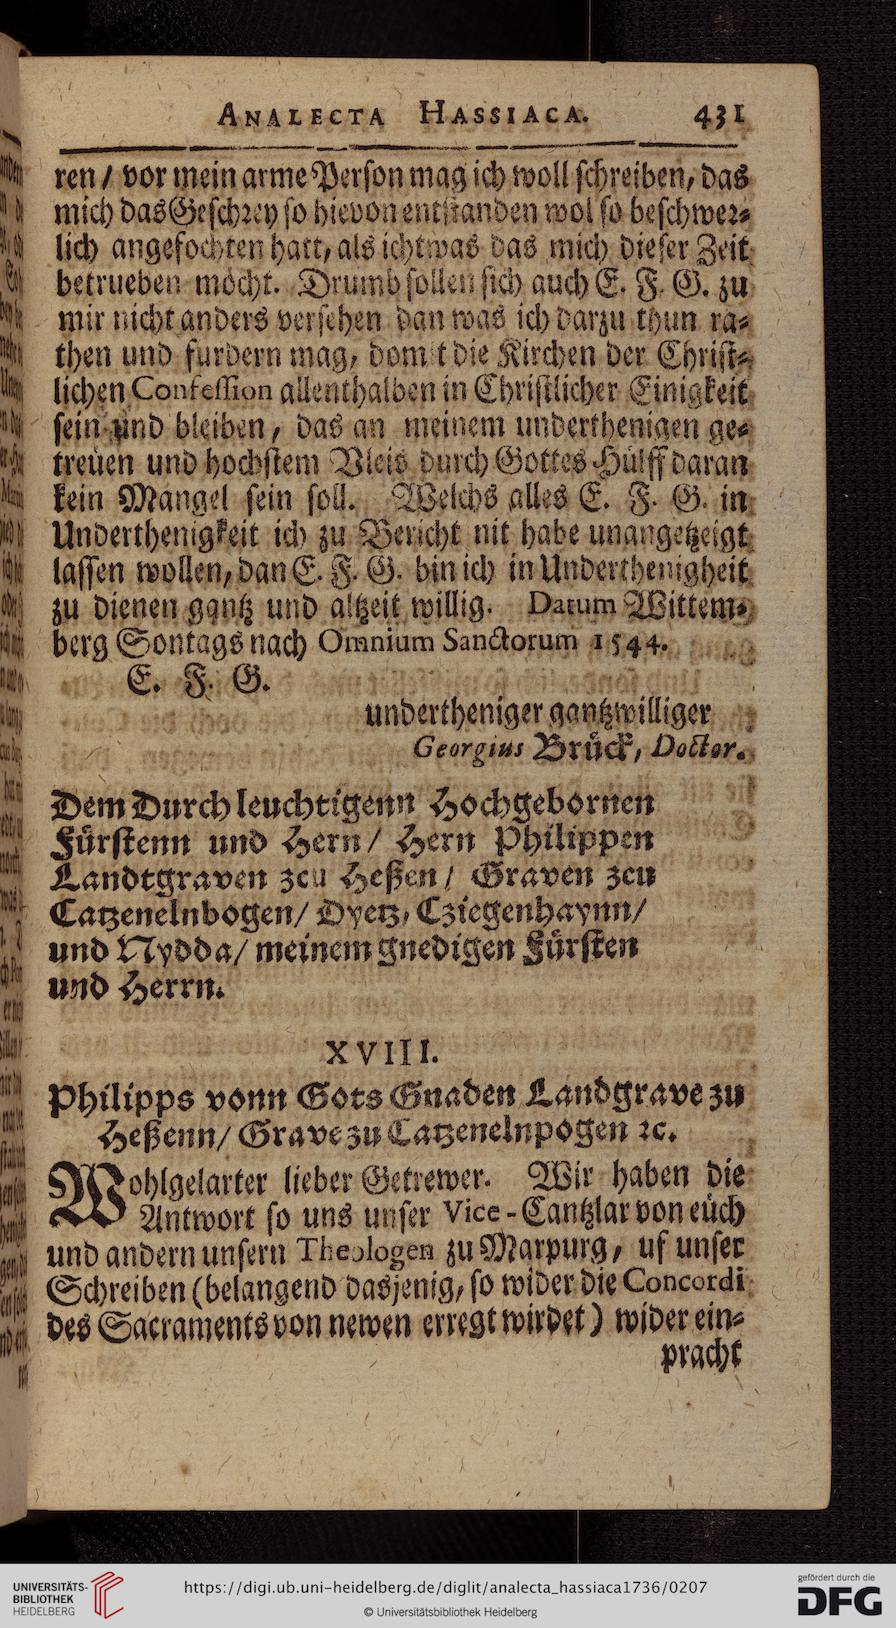 ANALECTA HASSIACA. 431
ren / vor mein arme Person mag ich woll schreiben, das
mich das Geschrey so hievon entstanden wol so beschwer⸗
lich angefochten hatt, als ichtwas das mich dieser Zeit
betrueben möcht. Drumb sollen sich auch E. F. G. zu
mir nicht anders versehen dan was ich darzu thun ra⸗
then und furdern mag, domit die Kirchen der Christ⸗
lichen Confession allenthalben in Christlicher Einigkeit
sein und bleiben, das an meinem underthenigen ge⸗
treüen und hochstem Vleis durch Gottes Hülff daran
kein Mangel sein soll. Welchs alles E. F. G. in
Underthenigkeit ich zu Bericht nit habe unangetzeigt
lassen wollen, dan E. F. G. bin ich in Underthenigheit
zu dienen gantz und altzeit willig. Datum Wittem⸗
berg Sontags nach Omnium Sanctorum 1544.
E. F. G.
undertheniger gantzwilliger
Georgius Brück, Doctor.
Dem Durchleuchtigenn Hochgebornen
Fürstenn und Hern / Hern Philippen
Landtgraven zcu Heßen / Graven zcu
Catzenelnbogen / Dyetz, Cziegenhaynn /
und Nydda / meinem gnedigen Fürsten
und Herrn.
XVIII.
Philipps vonn Gots Gnaden Landgrave zu
Heßenn / Grave zu Catzenelnpogen ꝛc.
Wohlgelarter lieber Getrewer. Wir haben die
Antwort so uns unser Vice-Cantzlar von eüch
und andern unsern Theologen zu Marpurg, uf unser
Schreiben (belangend dasjenig, so wider die Concordi
des Sacraments von newen erregt wirdet) wider ein⸗
pracht
UNIVERSITÄTS-
BIBLIOTHEK
HEIDELBERG
https://digi.ub.uni-heidelberg.de/diglit/analecta_hassiaca1736/0207
© Universitätsbibliothek Heidelberg
gefördert durch die
DFG